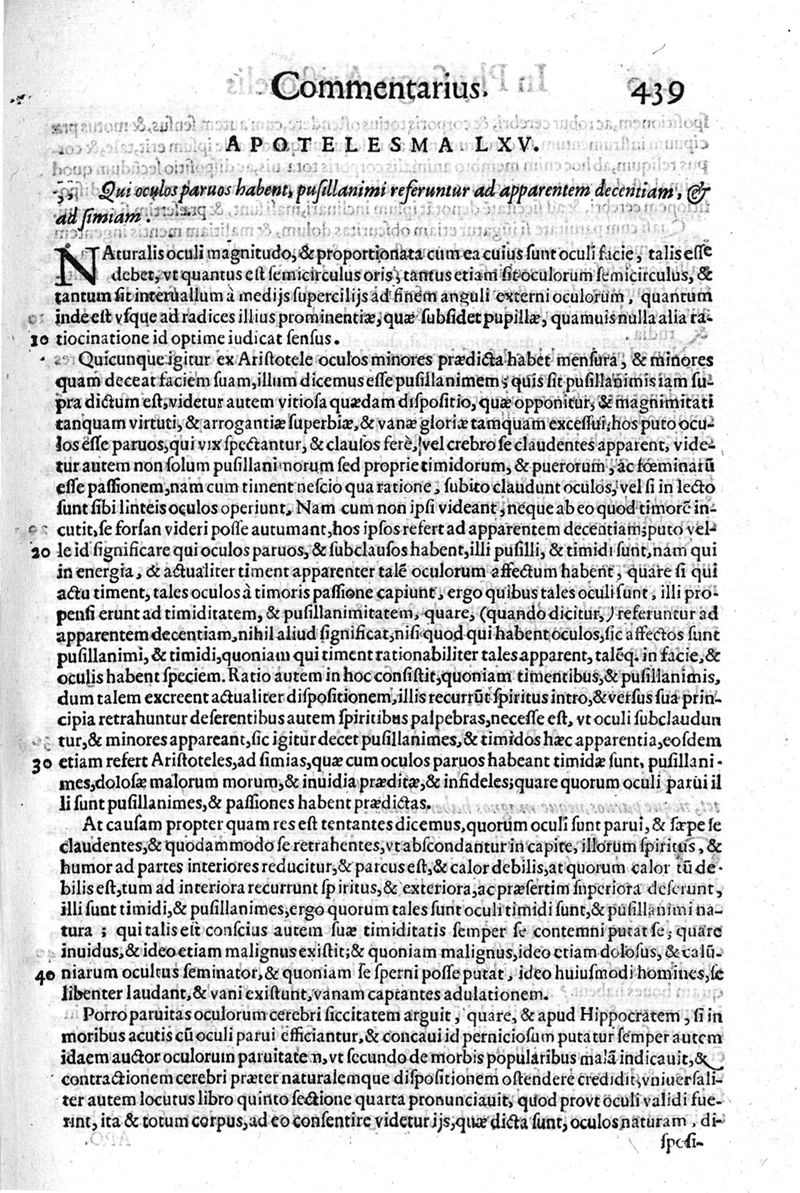 Commentarius. 439
APOTELESMA LXV.
Qui oculos paruos habent, pusillanimi referuntur ad apparentem decentiam, &
ad simiam.
NAturalis oculi magnitudo, & proportionata cum ea cuius sunt oculi facie, talis esse
debet, vt quantus est semicirculus oris, tantus etiam sit oculorum semicirculus, &
tantum sit interuallum à medijs supercilijs ad finem anguli externi oculorum, quantum
inde est vsque ad radices illius prominentiæ, quæ subsidet pupillæ, quamuis nulla alia ra-
10 tiocinatione id optime iudicat sensus.
Quicunque igitur ex Aristotele oculos minores prædicta habet mensura, & minores
quam deceat faciem suam, illum dicemus esse pusillanimem; quis sit pusillanimis iam su-
pra dictum est, videtur autem vitiosa quædam dispositio, quæ opponitur, & magnimitati
tanquam virtuti, & arrogantiæ superbiæ, & vanæ gloriæ tamquam excessui; hos puto ocu-
los esse paruos, qui vix spectantur, & clausos ferè, vel crebro se claudentes apparent, vide-
tur autem non solum pusillani morum sed proprie timidorum, & puerorum, ac fœminarū
esse passionem, nam cum timent nescio qua ratione, subito claudunt oculos, vel si in lecto
sunt sibi linteis oculos operiunt. Nam cum non ipsi videant, neque ab eo quod timorē in-
cutit, se forsan videri posse autumant, hos ipsos refert ad apparentem decentiam; puto vel-
20 le id significare qui oculos paruos, & subclausos habent, illi pusilli, & timidi sunt, nam qui
in energia, & actualiter timent apparenter talē oculorum affectum habent, quare si qui
actu timent, tales oculos à timoris passione capiunt, ergo quibus tales oculi sunt, illi pro-
pensi erunt ad timiditatem, & pusillanimitatem, quare, (quando dicitur,) referuntur ad
apparentem decentiam, nihil aliud significat, nisi quod qui habent oculos, sic affectos sunt
pusillanimi, & timidi, quoniam qui timent rationabiliter tales apparent, talēq. in facie, &
oculis habent speciem. Ratio autem in hoc consistit, quoniam timentibus, & pusillanimis,
dum talem excreent actualiter dispositionem, illis recurrūt spiritus intro, & versus sua prin-
cipia retrahuntur deserentibus autem spiritibus palpebras, necesse est, vt oculi subclaudun
tur, & minores appareant, sic igitur decet pusillanimes, & timidos hæc apparentia, eosdem
30 etiam refert Aristoteles, ad simias, quæ cum oculos paruos habeant timidæ sunt, pusillani-
mes, dolosæ malorum morum, & inuidia præditæ, & infideles; quare quorum oculi parui il
li sunt pusillanimes, & passiones habent prædictas.
At causam propter quam res est tentantes dicemus, quorum oculi sunt parui, & sæpe se
claudentes, & quodammodo se retrahentes, vt abscondantur in capite, illorum spiritus, &
humor ad partes interiores reducitur, & parcus est, & calor debilis, at quorum calor tū de-
bilis est, tum ad interiora recurrunt spiritus, & exteriora, ac præsertim superiora deserunt,
illi sunt timidi, & pusillanimes, ergo quorum tales sunt oculi timidi sunt, & pusillanimi na-
tura; qui talis est conscius autem suæ timiditatis semper se contemni putat se; quare
inuidus, & ideo etiam malignus existit; & quoniam malignus, ideo etiam dolosus, & calū-
40 niarum ocultus seminator, & quoniam se sperni posse putat, ideo huiusmodi homines, se
libenter laudant, & vani existunt, vanam captantes adulationem.
Porro paruitas oculorum cerebri siccitatem arguit, quare, & apud Hippocratem, si in
moribus acutis cū oculi parui efficiantur, & concaui id perniciosum putatur semper autem
idaem auctor oculorum paruitatem, vt secundo de morbis popularibus malā indicauit, &
contractionem cerebri præter naturalemque dispositionem ostendere credidit, vniuersali-
ter autem locutus libro quinto sectione quarta pronunciauit, quod prout oculi validi fue-
rint, ita & totum corpus, ad eo consentire videtur ijs, quæ dicta sunt, oculos naturam, di-
sposi-